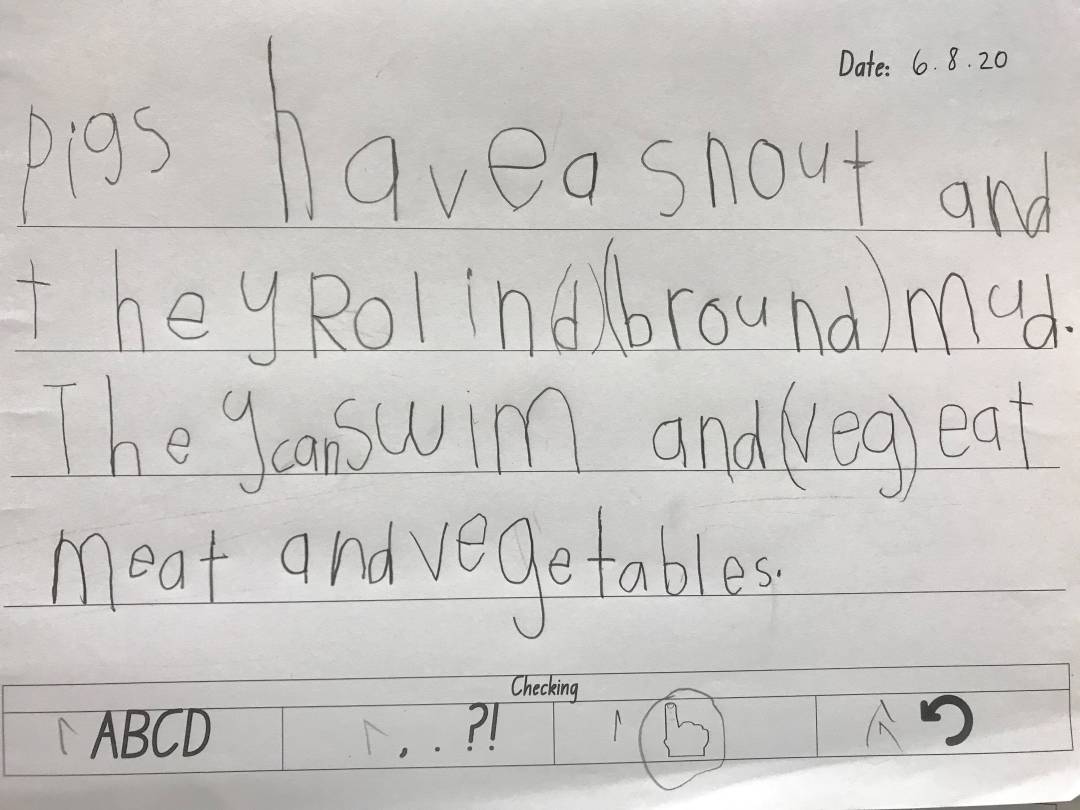 Date: 6.8.20
pigs have a snout and
they Rol in (d) (bround) mud.
They can swim and (veg) eat
meat and vegetables.
Checking
ABCD , . ?!